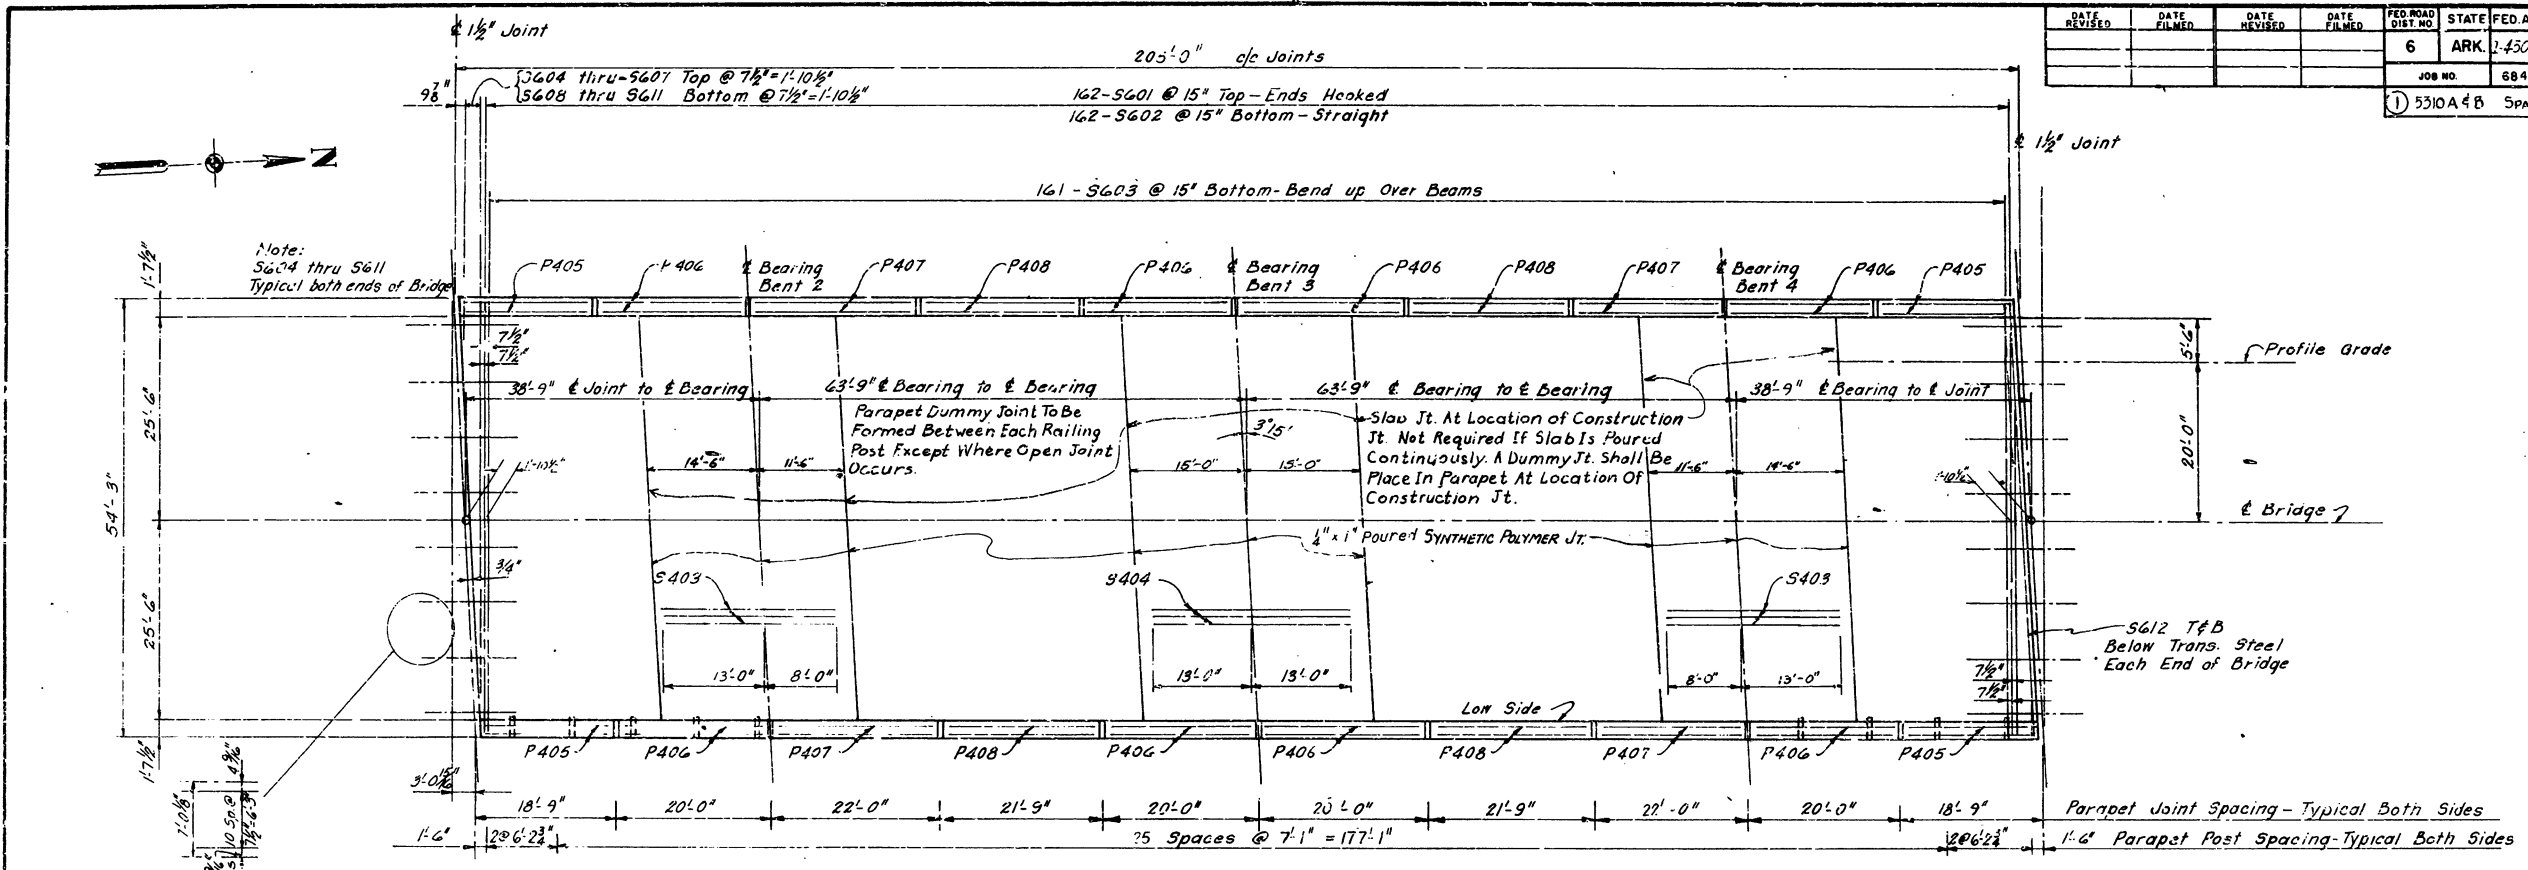 DATE REVISED
DATE FILMED
DATE REVISED
DATE FILMED
FED. ROAD DIST. NO.
STATE
FED. A
6
ARK.
JOB NO.
684
① 5310 A & B SPA
℄ 1½" Joint
205'-0" c/c Joints
S604 thru-S607 Top @ 7½"=1'-10½"
S608 thru S611 Bottom @ 7½"=1'-10½"
9⅞"
162-S601 @ 15" Top-Ends Hooked
162-S602 @ 15" Bottom-Straight
℄ 1½" Joint
N
161-S603 @ 15" Bottom-Bend up Over Beams
Note:
S604 thru S611
Typical both ends of Bridge
P405
P406
℄ Bearing
Bent 2
P407
P408
P406
℄ Bearing
Bent 3
P406
P408
P407
℄ Bearing
Bent 4
P406
P405
1'-7½"
25'-6"
54'-3"
25'-6"
1'-7½"
7½"
7½"
5'-6"
Profile Grade
20'-0"
38'-9" ℄ Joint to ℄ Bearing
63'-9" ℄ Bearing to ℄ Bearing
63'-9" ℄ Bearing to ℄ Bearing
38'-9" ℄ Bearing to ℄ Joint
Parapet Dummy Joint To Be
Formed Between Each Railing
Post Except Where Open Joint
Occurs.
Slab Jt. At Location of Construction
Jt. Not Required If Slab Is Poured
Continuously. A Dummy Jt. Shall Be
Place In Parapet At Location Of
Construction Jt.
3°15'
1'-10½"
14'-6"
11'-6"
15'-0"
15'-0"
11'-6"
14'-6"
1'-10½"
℄ Bridge
¼" x 1" Poured SYNTHETIC POLYMER JT.
3/4"
S403
S404
S403
S612 T&B
Below Trans. Steel
Each End of Bridge
13'-0"
8'-0"
13'-0"
13'-0"
8'-0"
13'-0"
7½"
7½"
Low Side
P405
P406
P407
P408
P406
P406
P408
P407
P406
P405
3'-0 15/16"
18'-9"
20'-0"
22'-0"
21'-9"
20'-0"
20'-0"
21'-9"
22'-0"
20'-0"
18'-9"
Parapet Joint Spacing-Typical Both Sides
1'-6"
2@6'-2¾"
25 Spaces @ 7'-1" = 177'-1"
2@6'-2¾"
1'-6" Parapet Post Spacing-Typical Both Sides
7'-0⅛"
4 9/16"
10 Sp. @
7½"=6'-3"